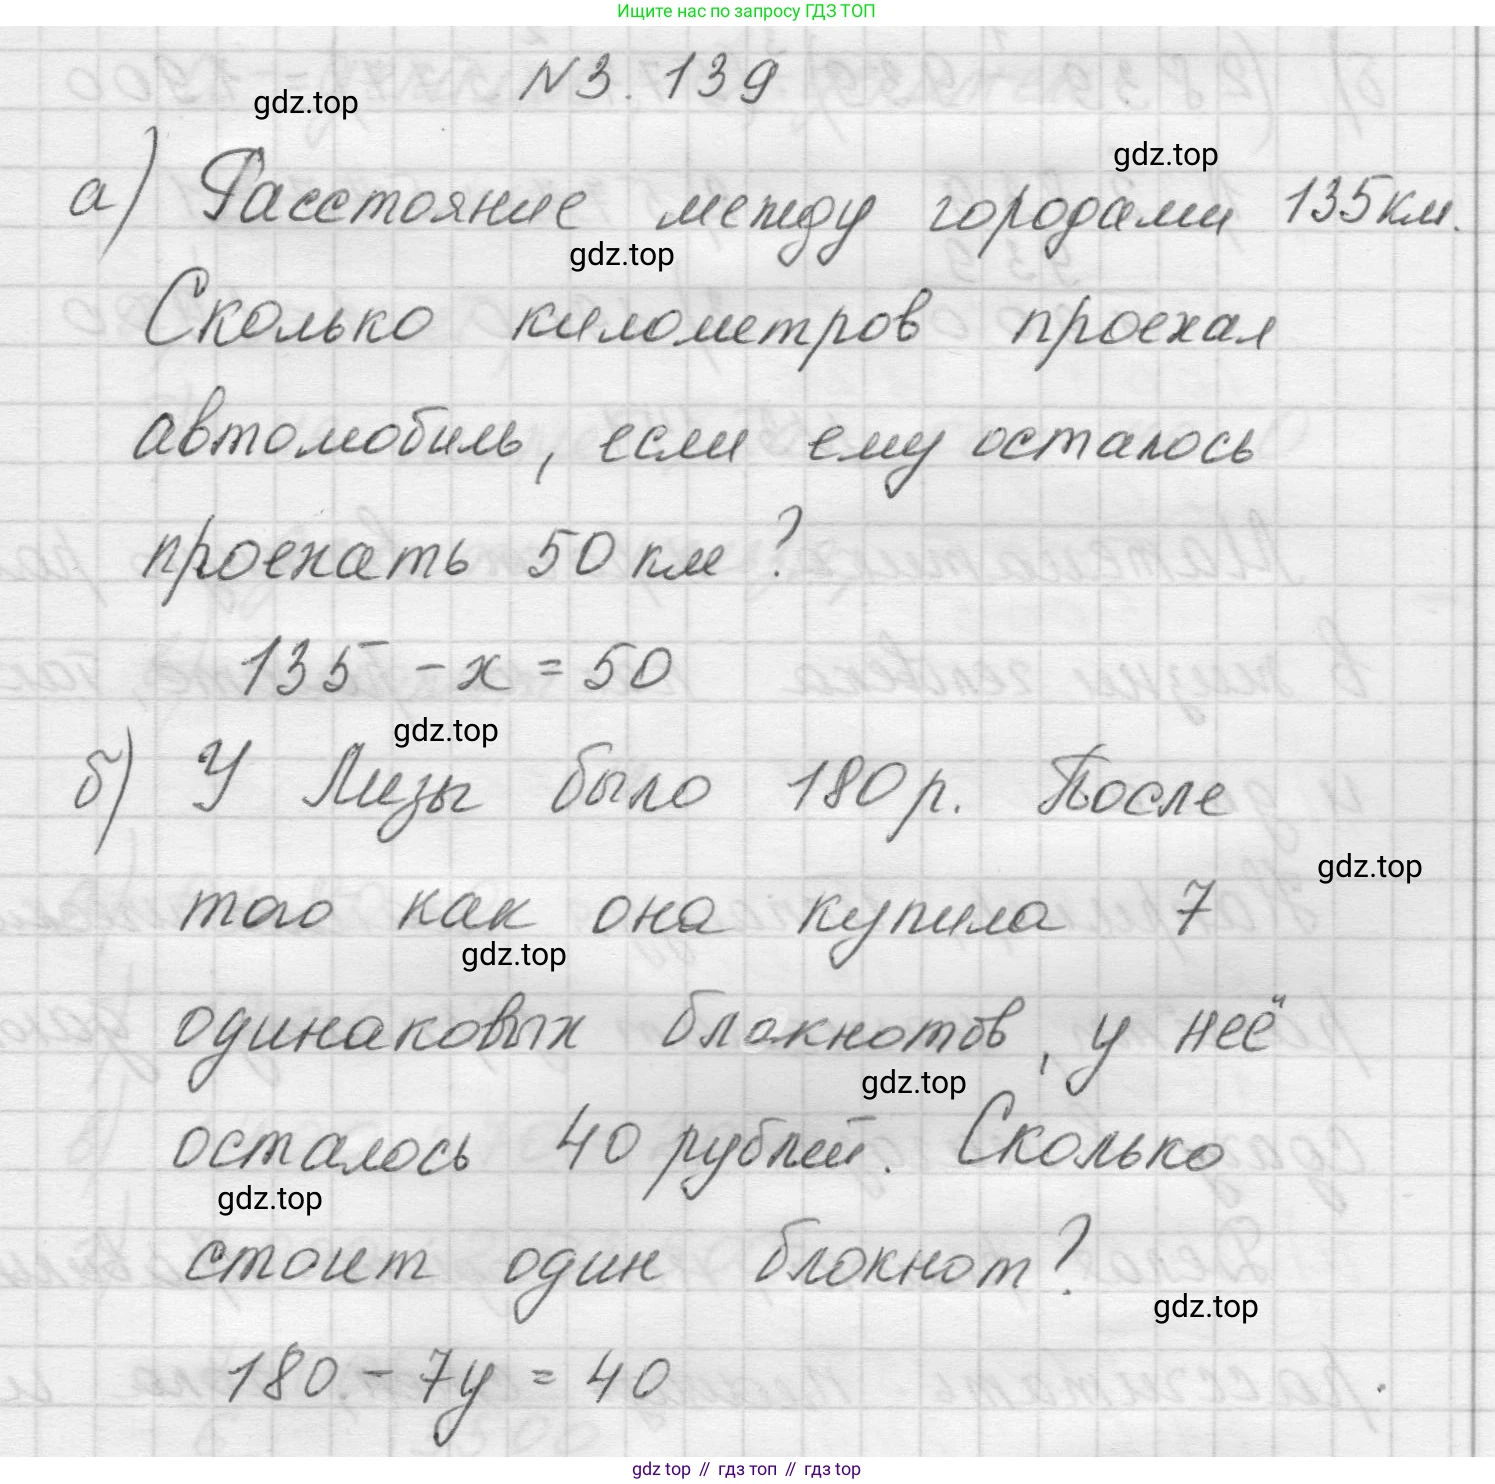 Ищите нас по запросу ГДЗ ТОП
N3.139
gdz.top
gdz.top
а) Расстояние между городами 135км.
gdz.top
Сколько километров проехал
автомобиль, если ему осталось
проехать 50 км?
135 - x = 50
gdz.top
б) У Лизы было 180 р. После
gdz.top
того как она купила 7
gdz.top
одинаковых блокнотов, у неё
gdz.top
осталось 40 рублей. Сколько
gdz.top
стоит один блокнот?
gdz.top
180 - 7y = 40
gdz top // гдз топ // гдз top